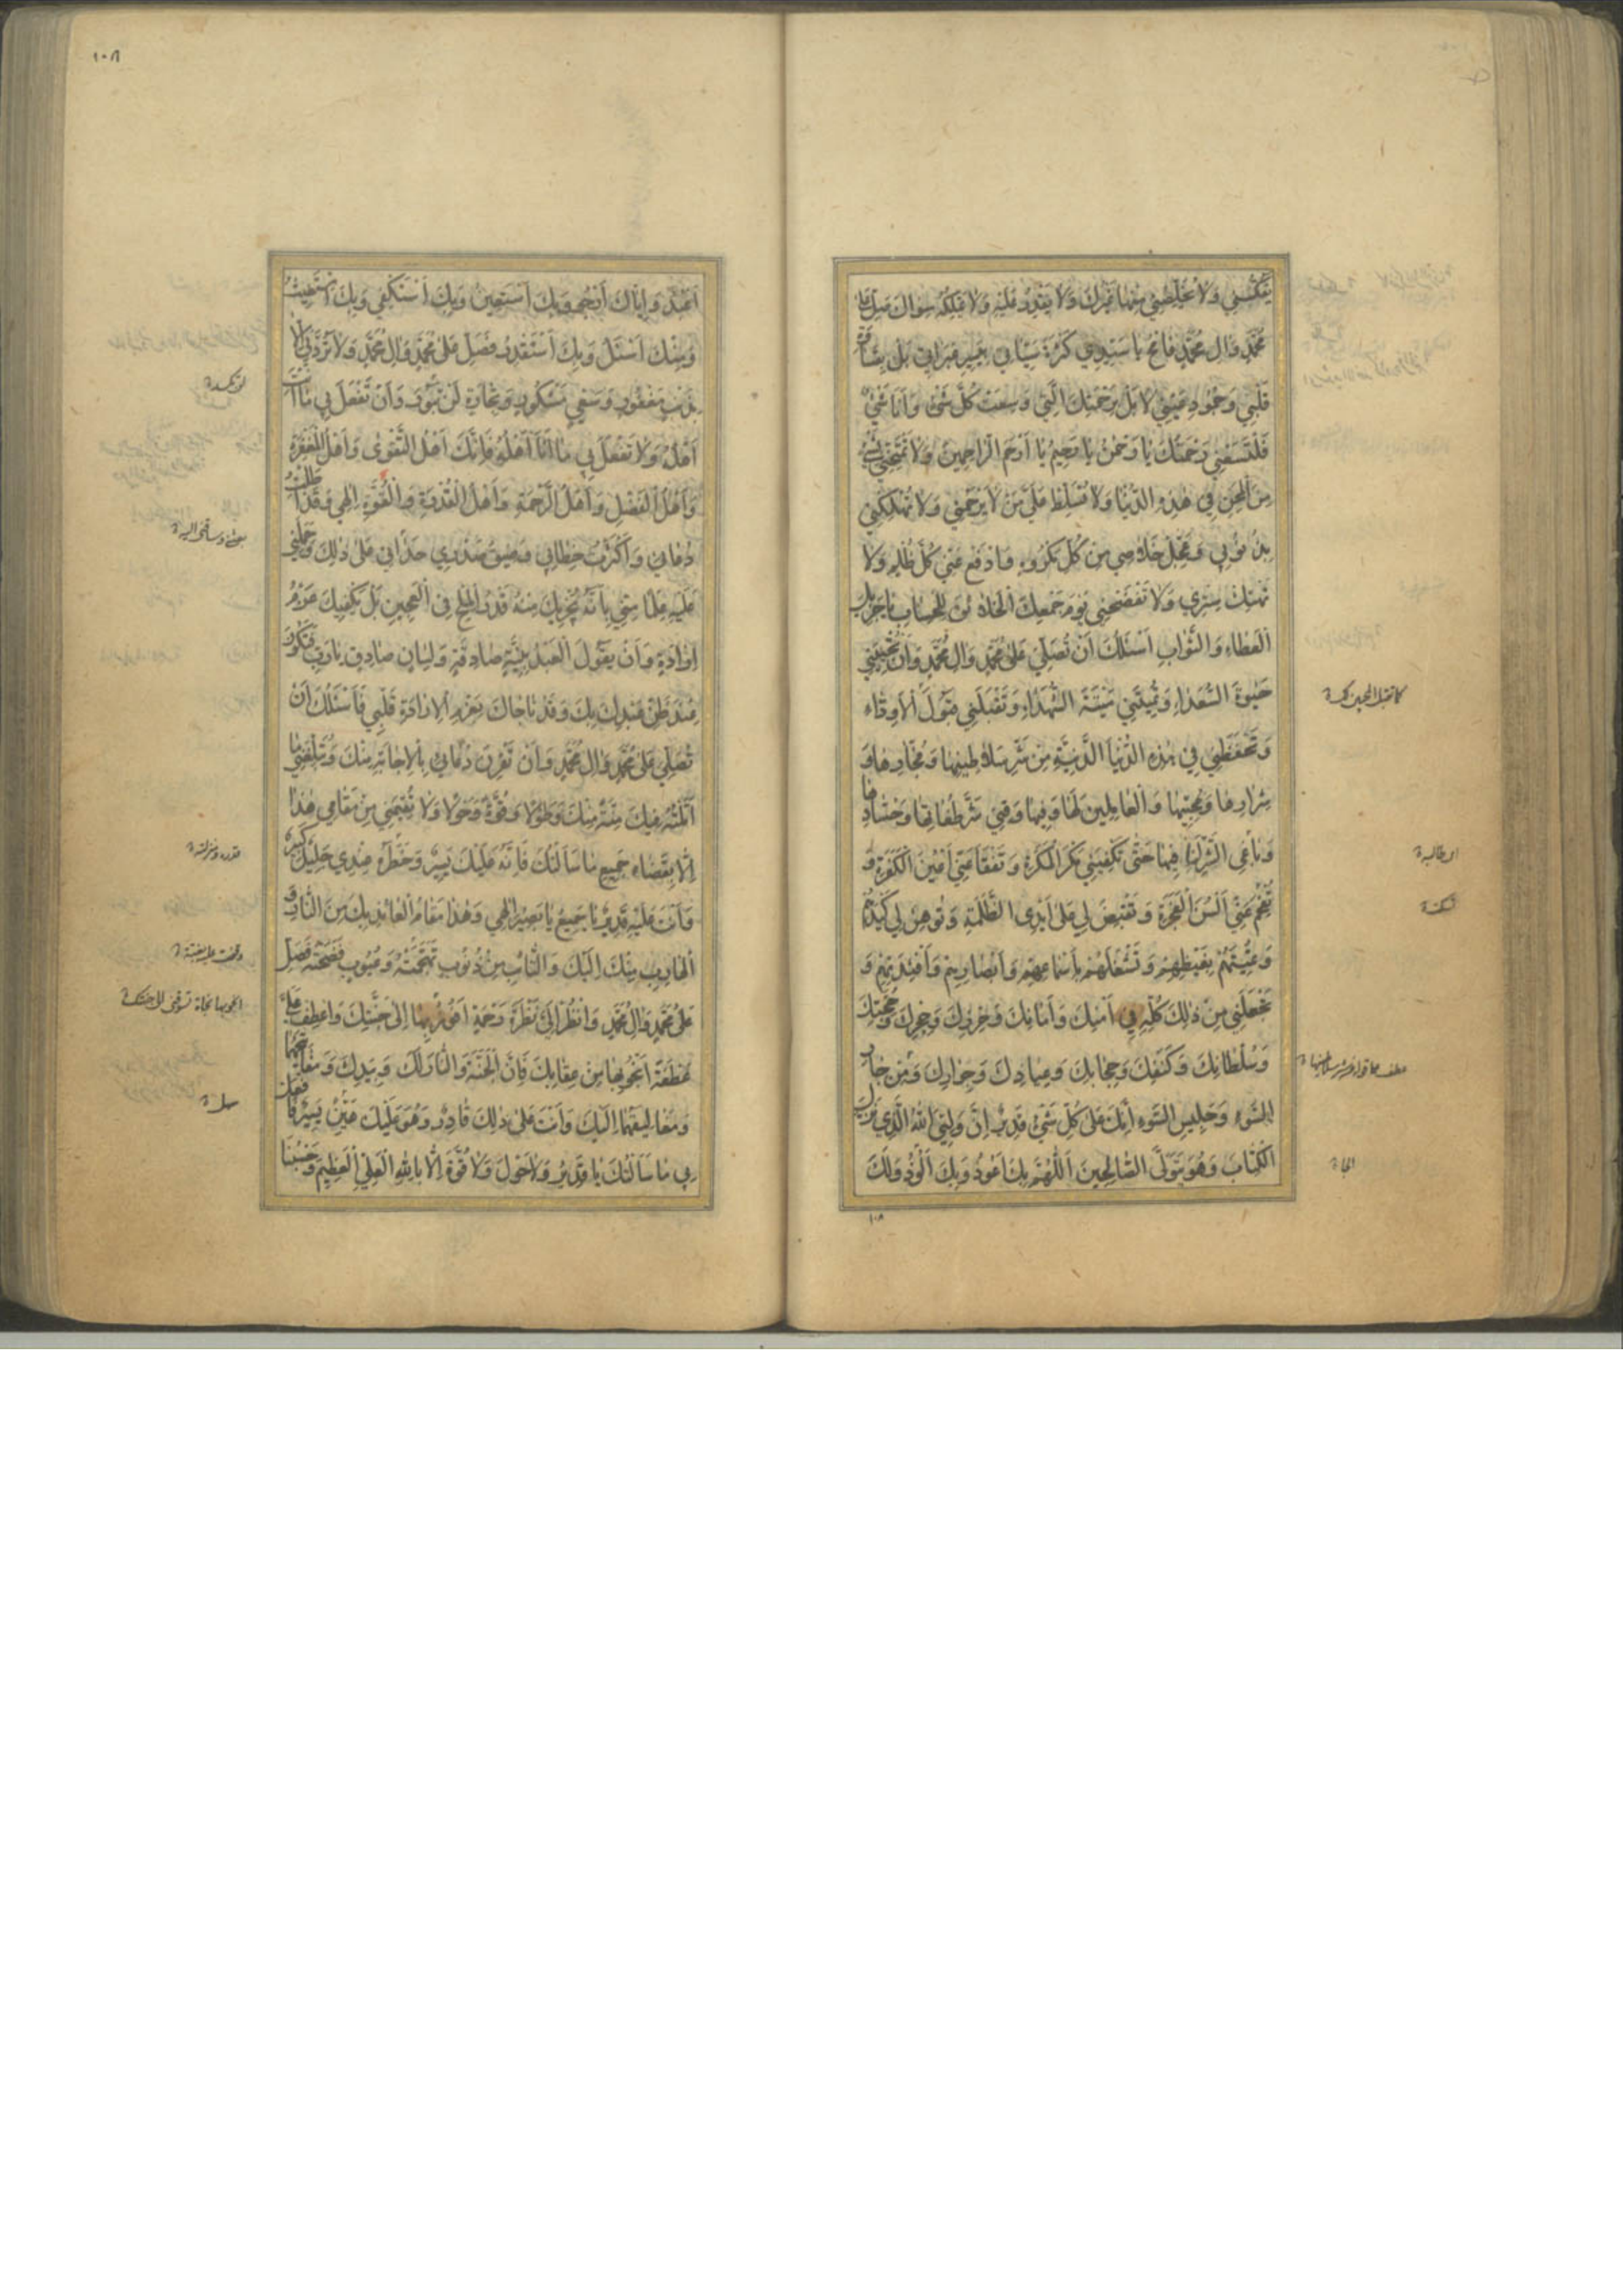 وَلَا يُخَلِّصُنِي مِنْهَا غَيْرُكَ وَلَا يَقْدِرُ عَلَيْهِ وَلَا يَمْلِكُهُ سِوَاكَ فَصَلِّ عَلَىٰ
مُحَمَّدٍ وَآلِ مُحَمَّدٍ يَا سَيِّدِي
قَلْبِي وَجُمُودِ عَيْنِي لَا بَلْ بِرَحْمَتِكَ الَّتِي وَسِعَتْ كُلَّ شَيْءٍ وَأَنَا شَيْءٌ
فَلْتَسَعْنِي رَحْمَتُكَ يَا رَحْمٰنُ يَا رَحِيمُ يَا أَرْحَمَ الرَّاحِمِينَ وَلَا تَمْتَحِنِّي بِشَيْءٍ
مِنَ الْمِحَنِ فِي هٰذِهِ الدُّنْيَا وَلَا تُسَلِّطْ عَلَيَّ مَنْ لَا يَرْحَمُنِي وَلَا تُهْلِكْنِي
بِذُنُوبِي وَعَجِّلْ خَلَاصِي مِنْ كُلِّ مَكْرُوهٍ وَادْفَعْ عَنِّي كُلَّ ظُلْمٍ وَلَا
تَهْتِكْ سِتْرِي وَلَا تَفْضَحْنِي يَوْمَ جَمْعِكَ الْخَلَائِقَ لِلْحِسَابِ يَا جَزِيلَ
الْعَطَاءِ وَالثَّوَابِ أَسْئَلُكَ أَنْ تُصَلِّيَ عَلَىٰ مُحَمَّدٍ وَآلِ مُحَمَّدٍ وَأَنْ تُحْيِيَنِي
حَيٰوةَ السُّعَدَاءِ وَتُمِيتَنِي مِيتَةَ الشُّهَدَاءِ وَتَقْبَلَنِي قَبُولَ الْأَوِدَّاءِ
وَتَحْفَظَنِي فِي هٰذِهِ الدُّنْيَا الدَّنِيَّةِ مِنْ شَرِّ سَلَاطِينِهَا وَفُجَّارِهَا وَ
شِرَارِهَا وَمُحِبِّيهَا وَالْعَامِلِينَ لَهَا وَفِيهَا وَقِنِي شَرَّ طُغَاتِهَا وَحُسَّادِهَا
وَبَاغِي الشِّرْكِ فِيهَا حَتَّىٰ تَكْفِيَنِي مَكْرَ الْمَكَرَةِ وَتَفْقَأَ عَنِّي أَعْيُنَ الْكَفَرَةِ وَ
تُفْحِمَ عَنِّي أَلْسُنَ الْفَجَرَةِ وَتَقْبِضَ لِي عَلَىٰ أَيْدِي الظَّلَمَةِ وَتُوهِنَ لِي كَيْدَهُمْ
وَتُمِيتَهُمْ بِغَيْظِهِمْ وَتَشْغَلَهُمْ بِأَسْمَاعِهِمْ وَأَبْصَارِهِمْ وَأَفْئِدَتِهِمْ وَ
تَجْعَلَنِي مِنْ ذٰلِكَ كُلِّهِ فِي أَمْنِكَ وَأَمَانِكَ وَحِرْزِكَ
وَسُلْطَانِكَ وَكَنَفِكَ وَحِجَابِكَ وَعِيَاذِكَ وَجِوَارِكَ وَمِنْ جَارِ
السَّوْءِ وَجَلِيسِ السَّوْءِ إِنَّكَ عَلَىٰ كُلِّ شَيْءٍ قَدِيرٌ إِنَّ وَلِيِّيَ اللّٰهُ الَّذِي نَزَّلَ
الْكِتَابَ وَهُوَ يَتَوَلَّى الصَّالِحِينَ اَللّٰهُمَّ بِكَ أَعُوذُ وَبِكَ أَلُوذُ وَلَكَ
١٠٨
أَعْبُدُ وَإِيَّاكَ أَرْجُو وَبِكَ أَسْتَعِينُ وَبِكَ أَسْتَكْفِي وَبِكَ أَسْتَغِيثُ
وَمِنْكَ أَسْئَلُ وَبِكَ أَسْتَقْدِرُ فَصَلِّ عَلَىٰ مُحَمَّدٍ وَآلِ مُحَمَّدٍ وَلَا تَرُدَّنِي إِلَّا
بِذَنْبٍ مَغْفُورٍ وَسَعْيٍ مَشْكُورٍ وَتِجَارَةٍ لَنْ تَبُورَ وَأَنْ تَفْعَلَ بِي مَا أَنْتَ
أَهْلُهُ وَلَا تَفْعَلَ بِي مَا أَنَا أَهْلُهُ فَإِنَّكَ أَهْلُ التَّقْوَىٰ وَأَهْلُ الْمَغْفِرَةِ
وَأَهْلُ الْفَضْلِ وَأَهْلُ الرَّحْمَةِ وَأَهْلُ الْقُدْرَةِ وَالْقُوَّةِ إِلٰهِي وَقَدْ أَطَلْتُ
دُعَائِي وَأَكْثَرْتُ خِطَابِي وَضِيقُ صَدْرِي حَدَانِي عَلَىٰ ذٰلِكَ وَحَمَلَنِي
عَلَيْهِ عِلْمًا مِنِّي بِأَنَّهُ يُجْزِيكَ مِنْهُ قَدْرُ الْمِلْحِ فِي الْعَجِينِ بَلْ يَكْفِيكَ عَزْمُ
إِرَادَةٍ وَأَنْ يَقُولَ الْعَبْدُ بِنِيَّةٍ صَادِقَةٍ وَلِسَانٍ صَادِقٍ يَا رَبِّ فَتَكُونَ
عِنْدَ ظَنِّ عَبْدِكَ بِكَ وَقَدْ نَاجَاكَ بِعَزْمِ الْإِرَادَةِ قَلْبِي فَأَسْئَلُكَ أَنْ
تُصَلِّيَ عَلَىٰ مُحَمَّدٍ وَآلِ مُحَمَّدٍ وَأَنْ تَقْرِنَ دُعَائِي بِالْإِجَابَةِ مِنْكَ وَتُبَلِّغَنِي مَا
أَمَّلْتُهُ فِيكَ مِنَّةً مِنْكَ وَطَوْلًا وَقُوَّةً وَحَوْلًا وَلَا تُقِيمَنِي مِنْ مَقَامِي هٰذَا
إِلَّا بِقَضَاءِ جَمِيعِ مَا سَأَلْتُكَ فَإِنَّهُ عَلَيْكَ يَسِيرٌ وَخَطَرُهُ عِنْدِي جَلِيلٌ كَثِيرٌ
وَأَنْتَ عَلَيْهِ قَدِيرٌ يَا سَمِيعُ يَا بَصِيرُ إِلٰهِي وَهٰذَا مَقَامُ الْعَائِذِ بِكَ مِنَ النَّارِ وَ
الْهَارِبِ مِنْكَ إِلَيْكَ وَالتَّائِبِ مِنْ ذُنُوبٍ تَهَجَّمَتْهُ وَعُيُوبٍ فَضَحَتْهُ فَصَلِّ
عَلَىٰ مُحَمَّدٍ وَآلِ مُحَمَّدٍ وَانْظُرْ إِلَيَّ نَظْرَةَ رَحْمَةٍ أَفُوزُ بِهَا إِلَىٰ جَنَّتِكَ وَاعْطِفْ عَلَيَّ
عَطْفَةً أَنْجُو بِهَا مِنْ عِقَابِكَ فَإِنَّ الْجَنَّةَ وَالنَّارَ لَكَ وَبِيَدِكَ وَمَفَاتِيحُهُمَا
وَمَغَالِيقُهُمَا إِلَيْكَ وَأَنْتَ عَلَىٰ ذٰلِكَ قَادِرٌ وَهُوَ عَلَيْكَ هَيِّنٌ يَسِيرٌ فَافْعَلْ
بِي مَا سَأَلْتُكَ يَا قَدِيرُ وَلَا حَوْلَ وَلَا قُوَّةَ إِلَّا بِاللّٰهِ الْعَلِيِّ الْعَظِيمِ وَحَسْبُنَا